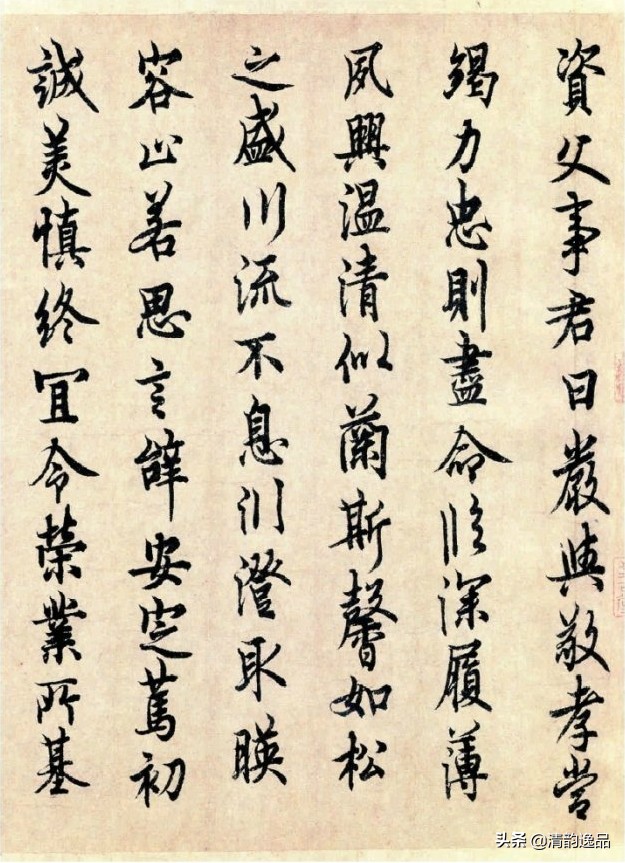 資父事君曰嚴與敬孝當
竭力忠則盡命臨深履薄
夙興温清似蘭斯馨如松
之盛川流不息渊澄取暎
容止若思言辝安定篤初
誠美慎終宜令榮業所基
头条 @清韵逸品